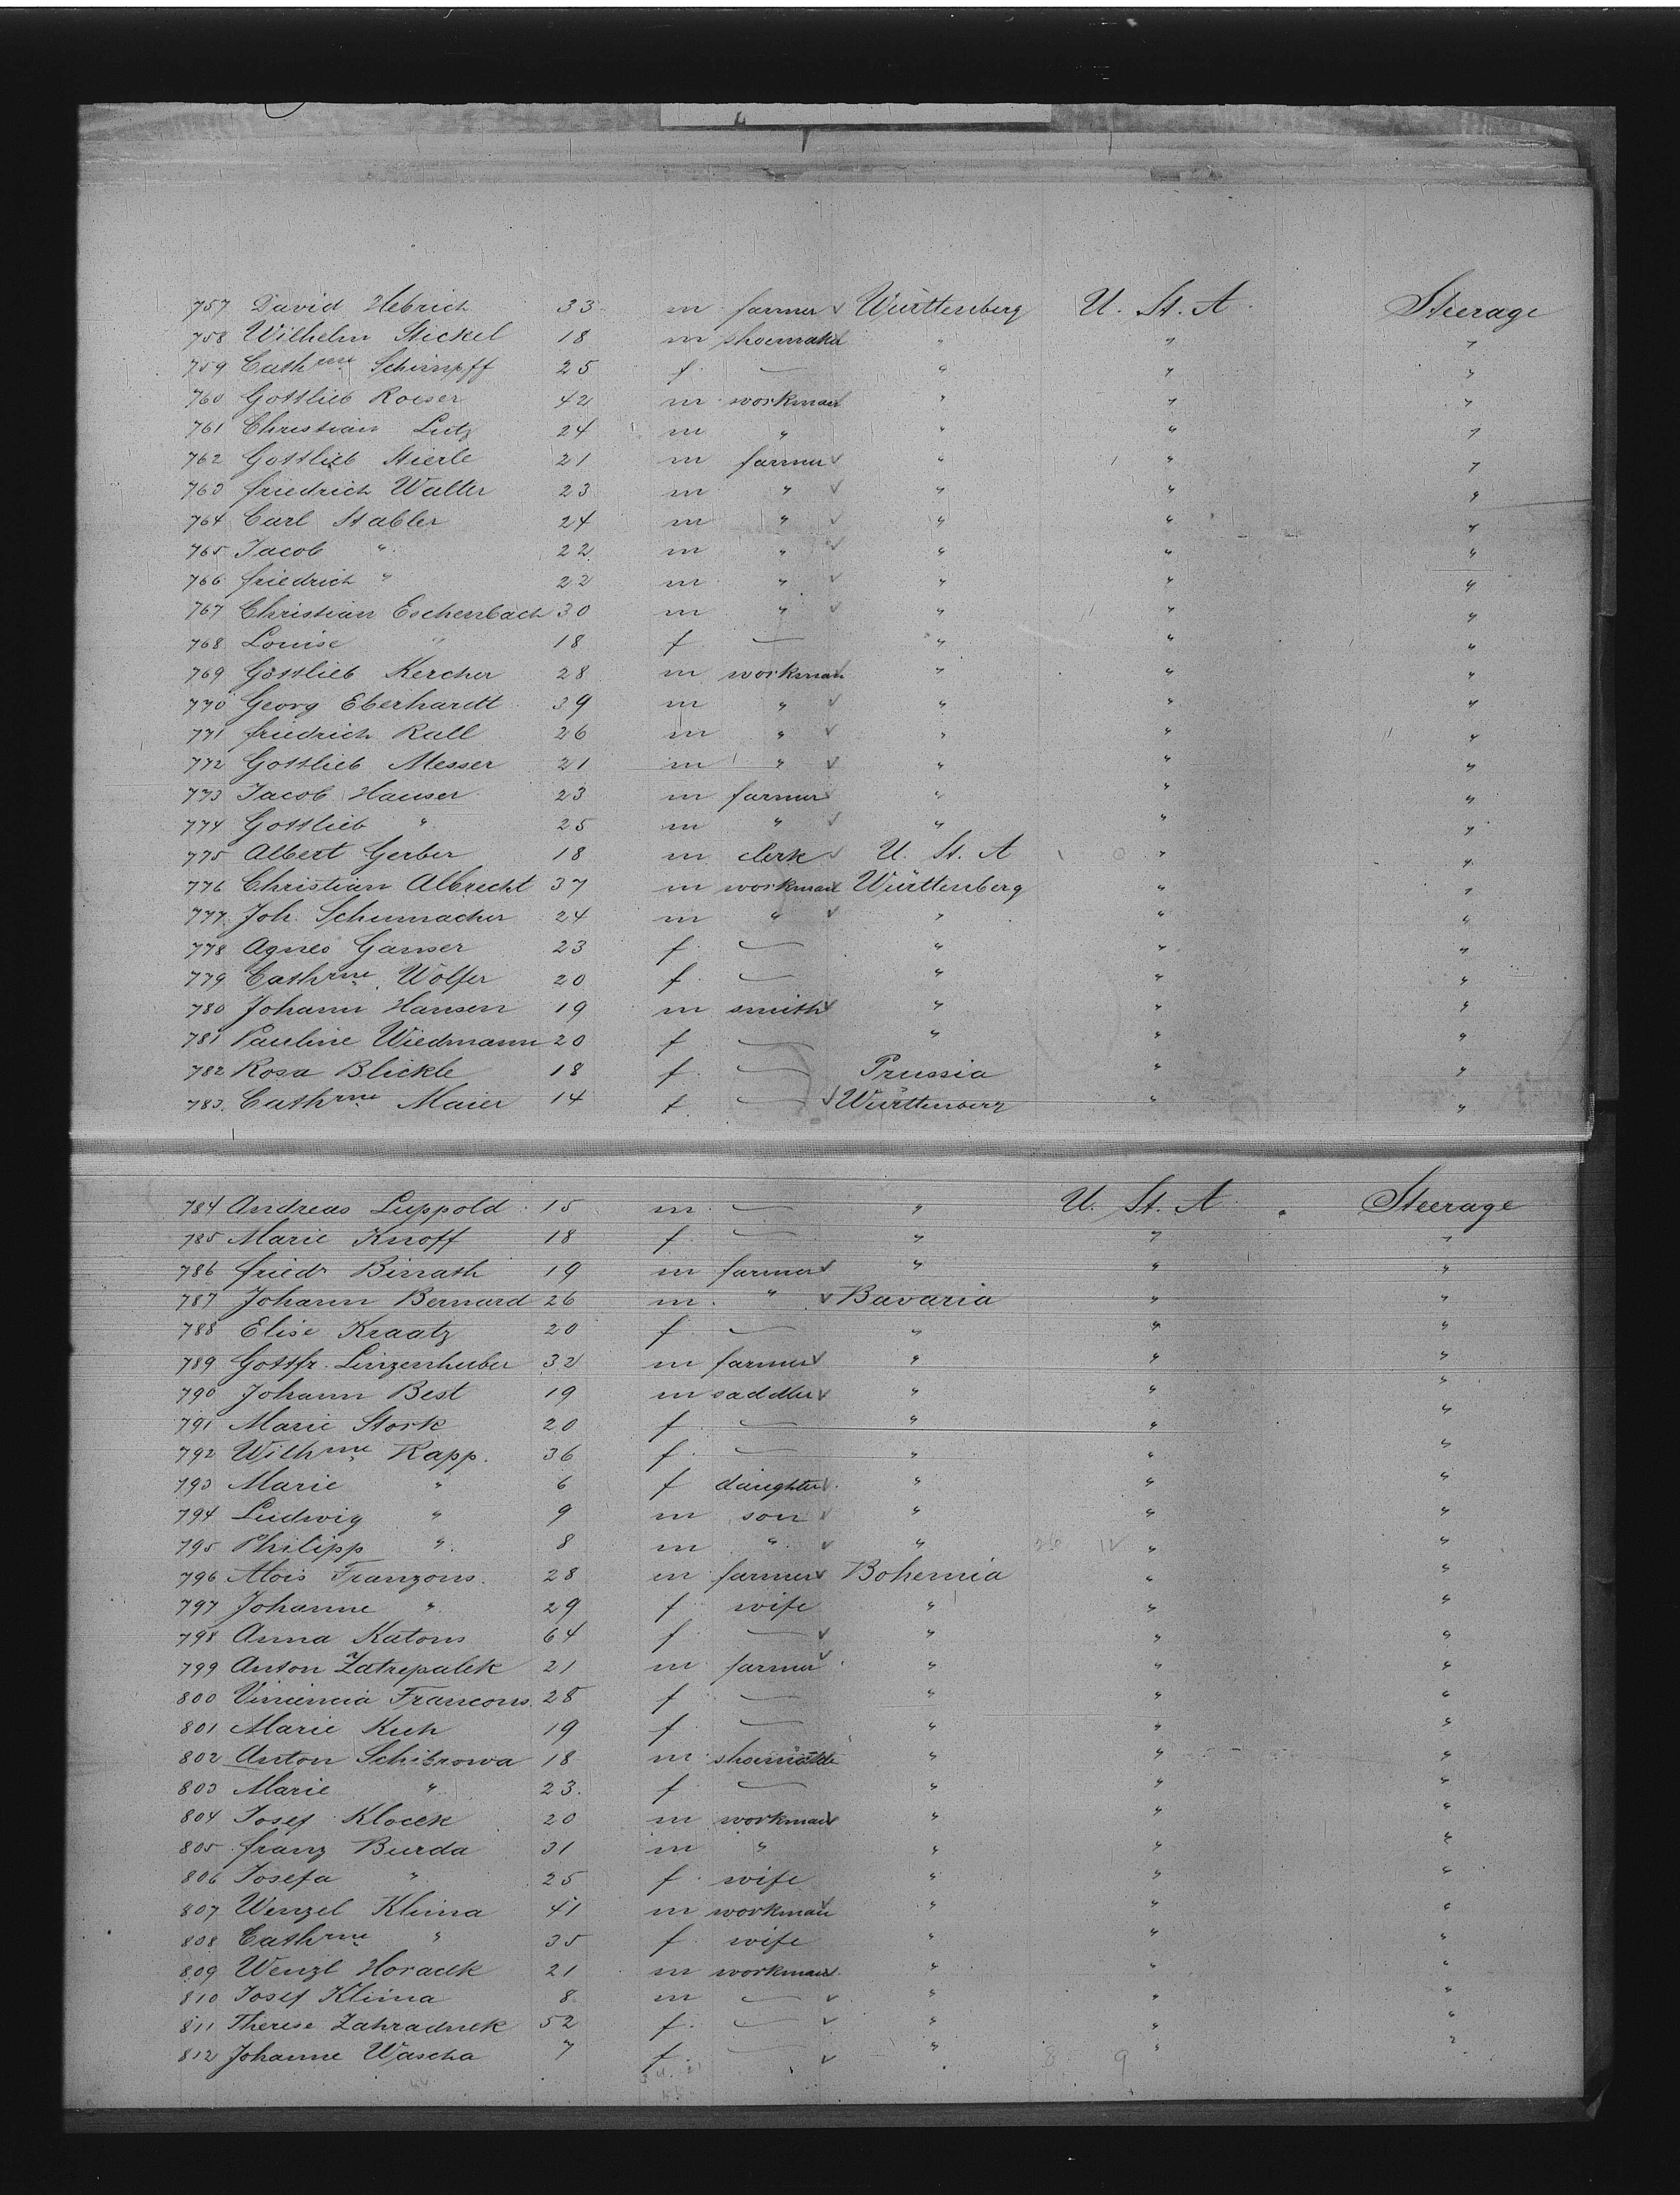 757 David Hebrich 33 m farmer Württenberg U. St. A. Steerage
758 Wilhelm Stickel 18 m shoemaker " " "
759 Cathrne Schimpff 25 f — " " "
760 Gottlieb Roeser 42 m workman " " "
761 Christian Lutz 24 m " " " "
762 Gottlieb Stierle 21 m farmer " " "
763 friedrich Walter 23 m " " " "
764 Carl Stabler 24 m " " " "
765 Jacob " 22 m " " " "
766 friedrich " 22 m " " " "
767 Christian Eschenbach 30 m " " " "
768 Louise " 18 f — " " "
769 Gottlieb Kercher 28 m workman " " "
770 Georg Eberhardt 39 m " " " "
771 friedrich Rall 26 m " " " "
772 Gottlieb Messer 21 m " " " "
773 Jacob Hauser 23 m farmer " " "
774 Gottlieb " 25 m " " " "
775 Albert Gerber 18 m clerk U. St. A " "
776 Christian Albrecht 37 m workman Württenberg " "
777 Joh. Schumacher 24 m " " " "
778 Agnes Ganser 23 f — " " "
779 Cathrne Wolfer 20 f — " " "
780 Johann Hansen 19 m smith " " "
781 Pauline Wiedmann 20 f — " " "
782 Rosa Blickle 18 f — Prussia " "
783 Cathrne Maier 14 f — Württenberg " "
784 Andreas Luppold 15 m — " U. St. A Steerage
785 Marie Knoff 18 f — " " "
786 friedr Binath 19 m farmer " " "
787 Johann Bernard 26 m " Bavaria " "
788 Elise Kraatz 20 f — " " "
789 Gottfr. Linzenhuber 32 m farmer " " "
790 Johann Best 19 m saddler " " "
791 Marie Stork 20 f — " " "
792 Wilhrne Rapp. 36 f — " " "
793 Marie " 6 f daughter " " "
794 Ludwig " 9 m son " " "
795 Philipp " 8 m " " " "
796 Alois Franzons 28 m farmer Bohemia " "
797 Johanne " 29 f wife " " "
798 Anna Katons 64 f — " " "
799 Anton Zatrepalek 21 m farmer " " "
800 Vincencia Francons 28 f — " " "
801 Marie Kuh 19 f — " " "
802 Anton Schibrowa 18 m shoemaker " " "
803 Marie " 23 f — " " "
804 Josef Klocek 20 m workman " " "
805 franz Burda 31 m " " " "
806 Josefa " 25 f wife " " "
807 Wenzel Klima 41 m workman " " "
808 Cathrne " 35 f wife " " "
809 Wenzl Horacek 21 m workman " " "
810 Josef Klima 8 m — " " "
811 Therese Zahradnek 52 f — " " "
812 Johanne Wascha 7 f — " " "